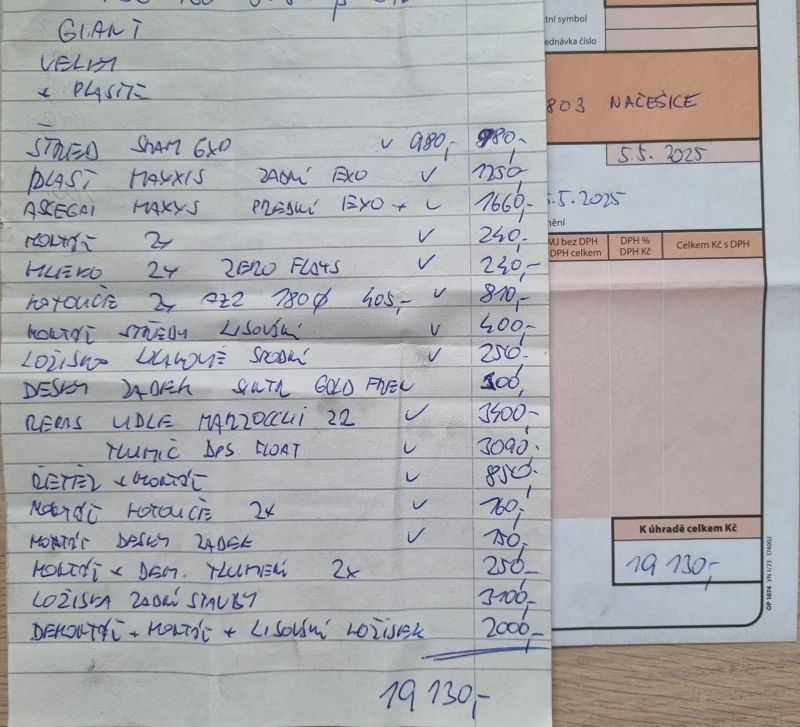 GIANT
VELKÝ
+ PLASTĚ
STŘED SRAM GXP ✓ 980,- 980,-
PLÁŠŤ MAXXIS ZADNÍ EXO ✓ 1250,-
ASSEGAI MAXXIS PŘEDNÍ EXO+ ✓ 1660,-
MONTÁŽ 2x ✓ 240,-
MLÉKO 2x ZERO FLATS ✓ 240,-
KOTOUČE 2x AZ2 180Ø 405,- ✓ 810,-
MONTÁŽ STŘEDU LISOVÁNÍ ✓ 400,-
LOŽISKO HLAVOVÉ SPODNÍ ✓ 250,-
DESKY ZADEK SINTR GOLD FREN 300,-
REPAS VIDLE MARZOCCHI Z2 ✓ 3400,-
TLUMIČ DPS FLOAT ✓ 3090,-
ŘETĚZ + MONTÁŽ ✓ 850,-
MONTÁŽ KOTOUČE 2x ✓ 160,-
MONTÁŽ DESKY ZADEK ✓ 150,-
MONTÁŽ + DEM. TLUMENÍ 2x 250,-
LOŽISKA ZADNÍ STAVBY 3100,-
DEMONTÁŽ + MONTÁŽ + LISOVÁNÍ LOŽISEK 2000,-
19 130,-
tní symbol
ednávka číslo
803 NAČEŠICE
5.5. 2025
5.5.2025
nění
MJ bez DPH DPH % Celkem Kč s DPH
DPH celkem DPH Kč
K úhradě celkem Kč
19 130,-
OP 1074 VN 1/23 174002